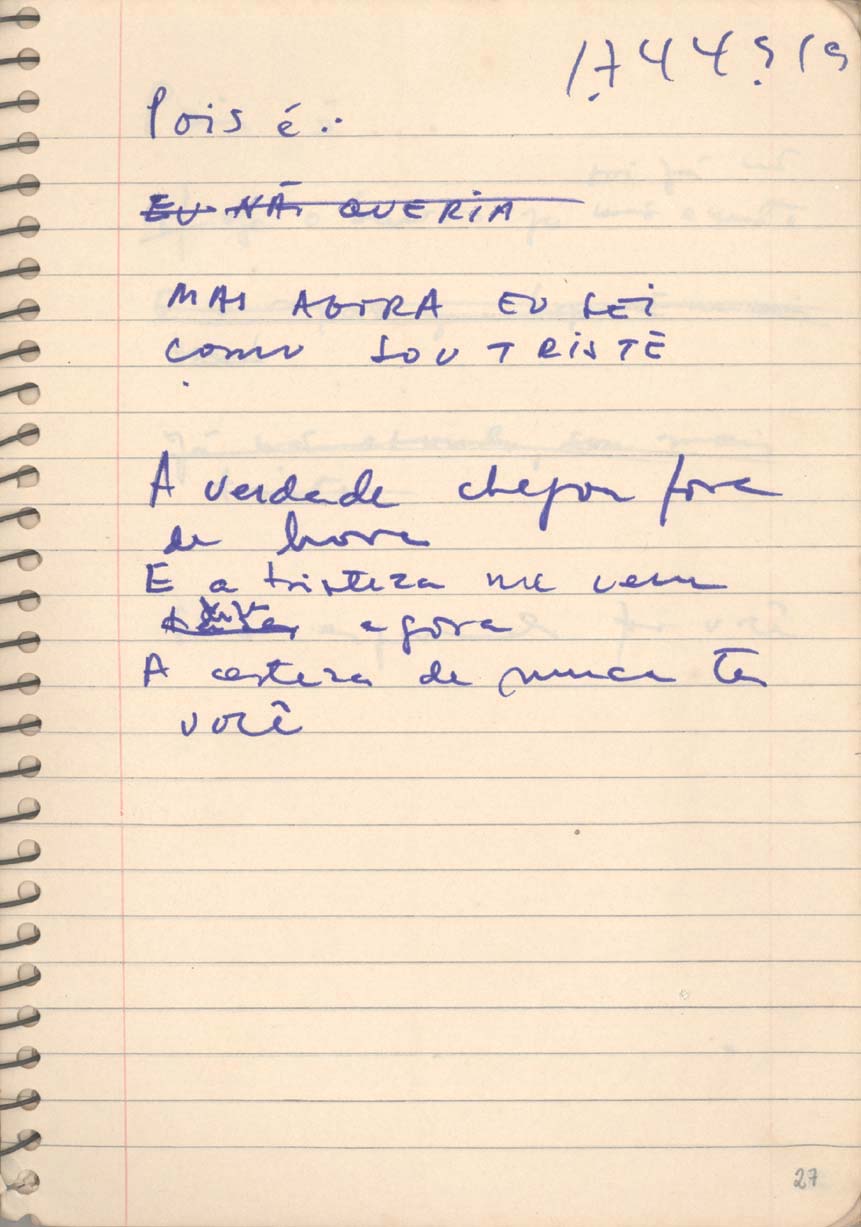 1.744.919
Pois é..
EU NÃ QUERIA
MAS AGORA EU SEI
COMO SOU TRISTE
A verdade chegou fora
de hora
E a tristeza me vem
agora
A certeza de nunca ter
você
27